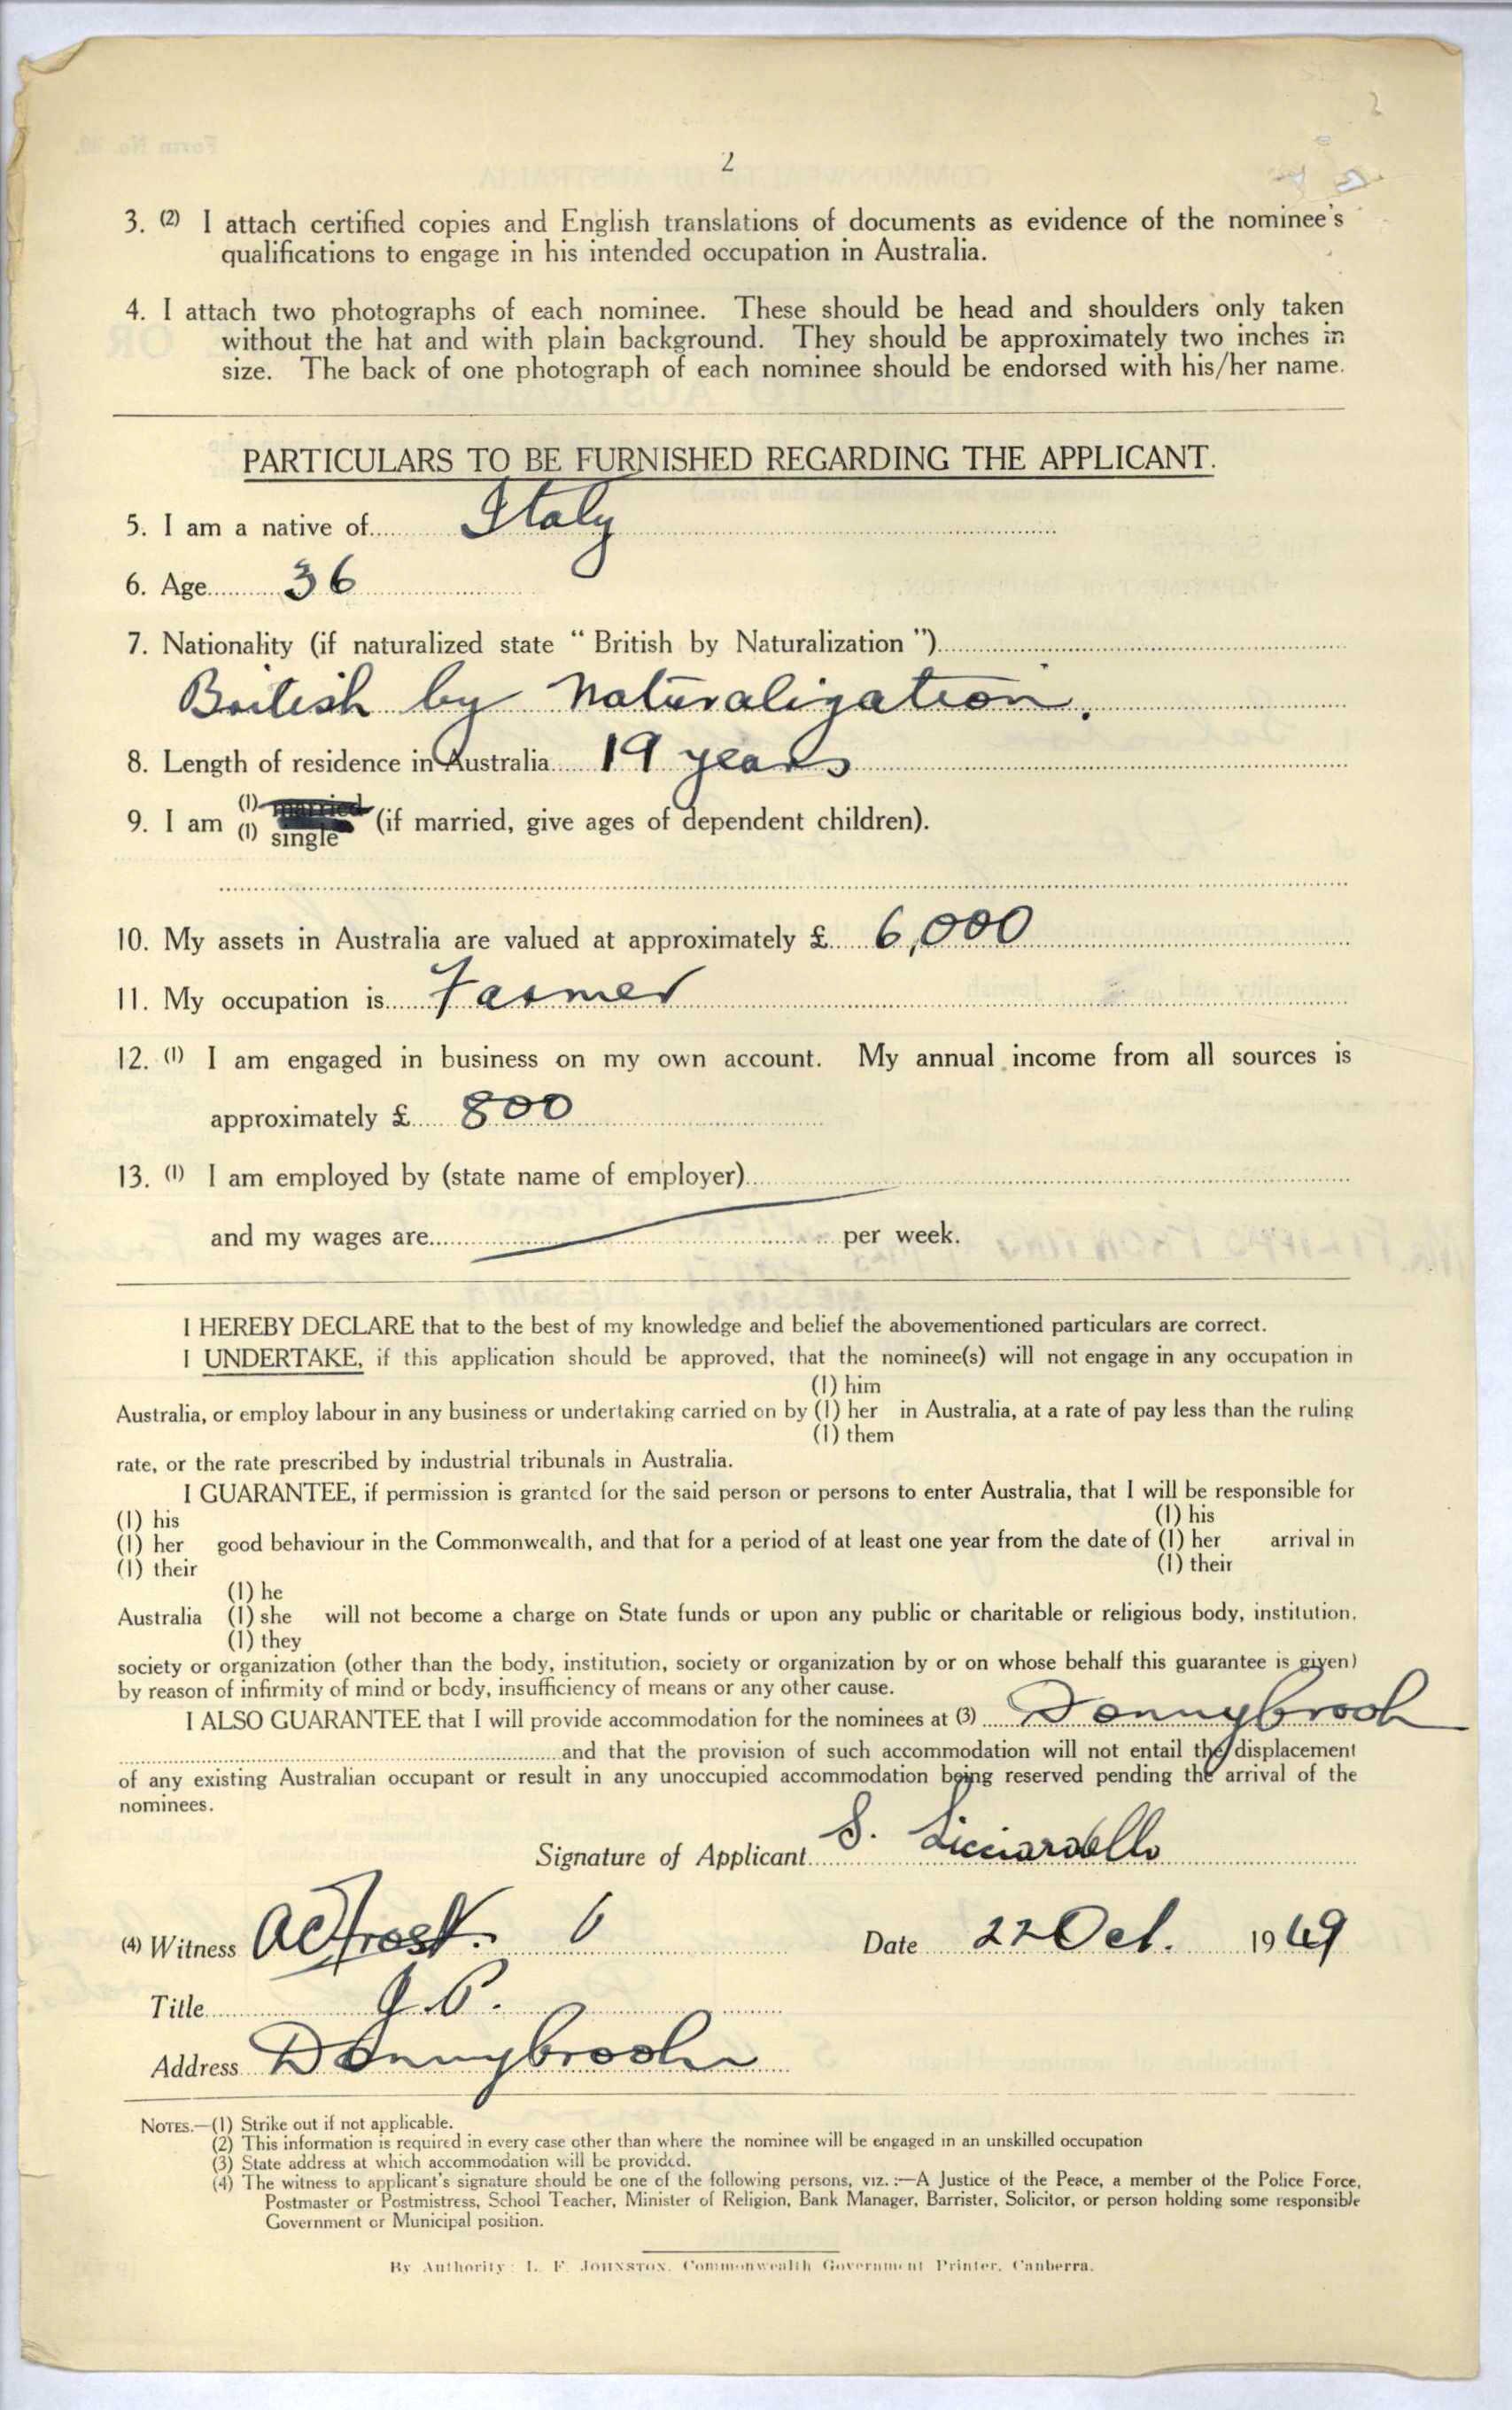 2
3. (2) I attach certified copies and English translations of documents as evidence of the nominee's
qualifications to engage in his intended occupation in Australia.
4. I attach two photographs of each nominee. These should be head and shoulders only taken
without the hat and with plain background. They should be approximately two inches in
size. The back of one photograph of each nominee should be endorsed with his/her name.
PARTICULARS TO BE FURNISHED REGARDING THE APPLICANT.
5. I am a native of Italy
6. Age 36
7. Nationality (if naturalized state "British by Naturalization")
British by Naturalization.
8. Length of residence in Australia 19 years
9. I am (1) married
(1) single (if married, give ages of dependent children).
10. My assets in Australia are valued at approximately £ 6,000
11. My occupation is Farmer
12. (1) I am engaged in business on my own account. My annual income from all sources is
approximately £ 800
13. (1) I am employed by (state name of employer)
and my wages are per week.
I HEREBY DECLARE that to the best of my knowledge and belief the abovementioned particulars are correct.
I UNDERTAKE, if this application should be approved, that the nominee(s) will not engage in any occupation in
(1) him
Australia, or employ labour in any business or undertaking carried on by (1) her in Australia, at a rate of pay less than the ruling
(1) them
rate, or the rate prescribed by industrial tribunals in Australia.
I GUARANTEE, if permission is granted for the said person or persons to enter Australia, that I will be responsible for
(1) his (1) his
(1) her good behaviour in the Commonwealth, and that for a period of at least one year from the date of (1) her arrival in
(1) their (1) their
(1) he
Australia (1) she will not become a charge on State funds or upon any public or charitable or religious body, institution,
(1) they
society or organization (other than the body, institution, society or organization by or on whose behalf this guarantee is given)
by reason of infirmity of mind or body, insufficiency of means or any other cause.
I ALSO GUARANTEE that I will provide accommodation for the nominees at (3) Donnybrook
and that the provision of such accommodation will not entail the displacement
of any existing Australian occupant or result in any unoccupied accommodation being reserved pending the arrival of the
nominees.
Signature of Applicant S. Licciardello
(4) Witness AC Frost. Date 22 Oct. 1949
Title J.P.
Address Donnybrook
NOTES.—(1) Strike out if not applicable.
(2) This information is required in every case other than where the nominee will be engaged in an unskilled occupation
(3) State address at which accommodation will be provided.
(4) The witness to applicant's signature should be one of the following persons, viz. :—A Justice of the Peace, a member of the Police Force,
Postmaster or Postmistress, School Teacher, Minister of Religion, Bank Manager, Barrister, Solicitor, or person holding some responsible
Government or Municipal position.
By Authority: L. F. JOHNSTON, Commonwealth Government Printer, Canberra.